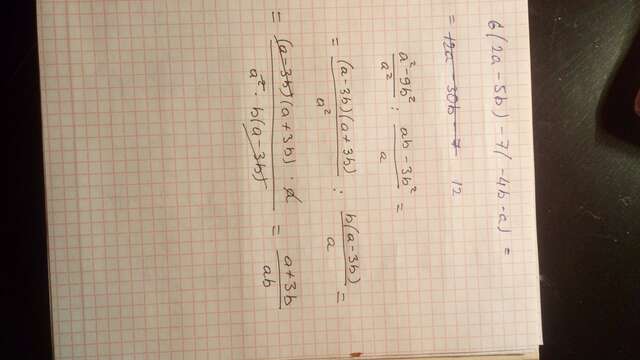 6(2a-5b)-7(-4b-a)=
=12a-30b-7 12
a²-9b²/a² : ab-3b²/a =
= (a-3b)(a+3b)/a² : b(a-3b)/a =
= (a-3b)(a+3b)·a/a²·b(a-3b) = a+3b/ab